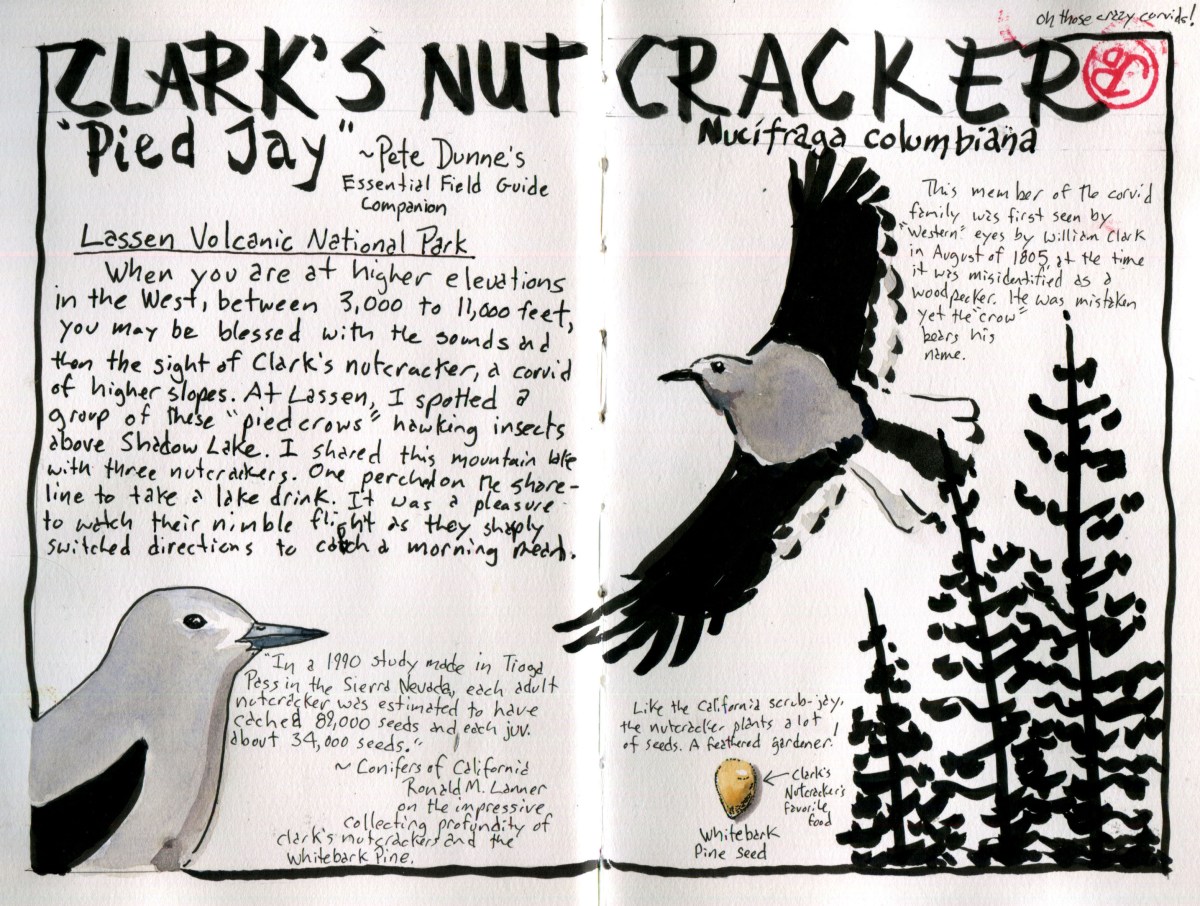 oh those crazy corvids!
CLARK'S NUTCRACKER
"Pied Jay"
~Pete Dunne's
Essential Field Guide
Companion
Nucifraga columbiana
Lassen Volcanic National Park
When you are at higher elevations
in the West, between 3,000 to 11,000 feet,
you may be blessed with the sounds and
then the sight of Clark's nutcracker, a corvid
of higher slopes. At Lassen, I spotted a
group of these "pied crows" hawking insects
above Shadow Lake. I shared this mountain lake
with three nutcrackers. One perched on the shore-
line to take a lake drink. It was a pleasure
to watch their nimble flight as they sharply
switched directions to catch a morning meal.
This member of the corvid
family was first seen by
"Western" eyes by William Clark
in August of 1805, at the time
it was misidentified as a
woodpecker. He was mistaken
yet the "crow"
bears his
name.
"In a 1990 study made in Tioga
Pass in the Sierra Nevada, each adult
nutcracker was estimated to have
cached 89,000 seeds and each juv.
about 34,000 seeds."
~ Conifers of California
Ronald M. Lanner
on the impressive
collecting profundity of
clark's nutcrackers and the
Whitebark Pine.
Like the California scrub-jay,
the nutcracker plants a lot
of seeds. A feathered gardener!
Clark's
Nutcracker's
favorite
food
Whitebark
Pine seed